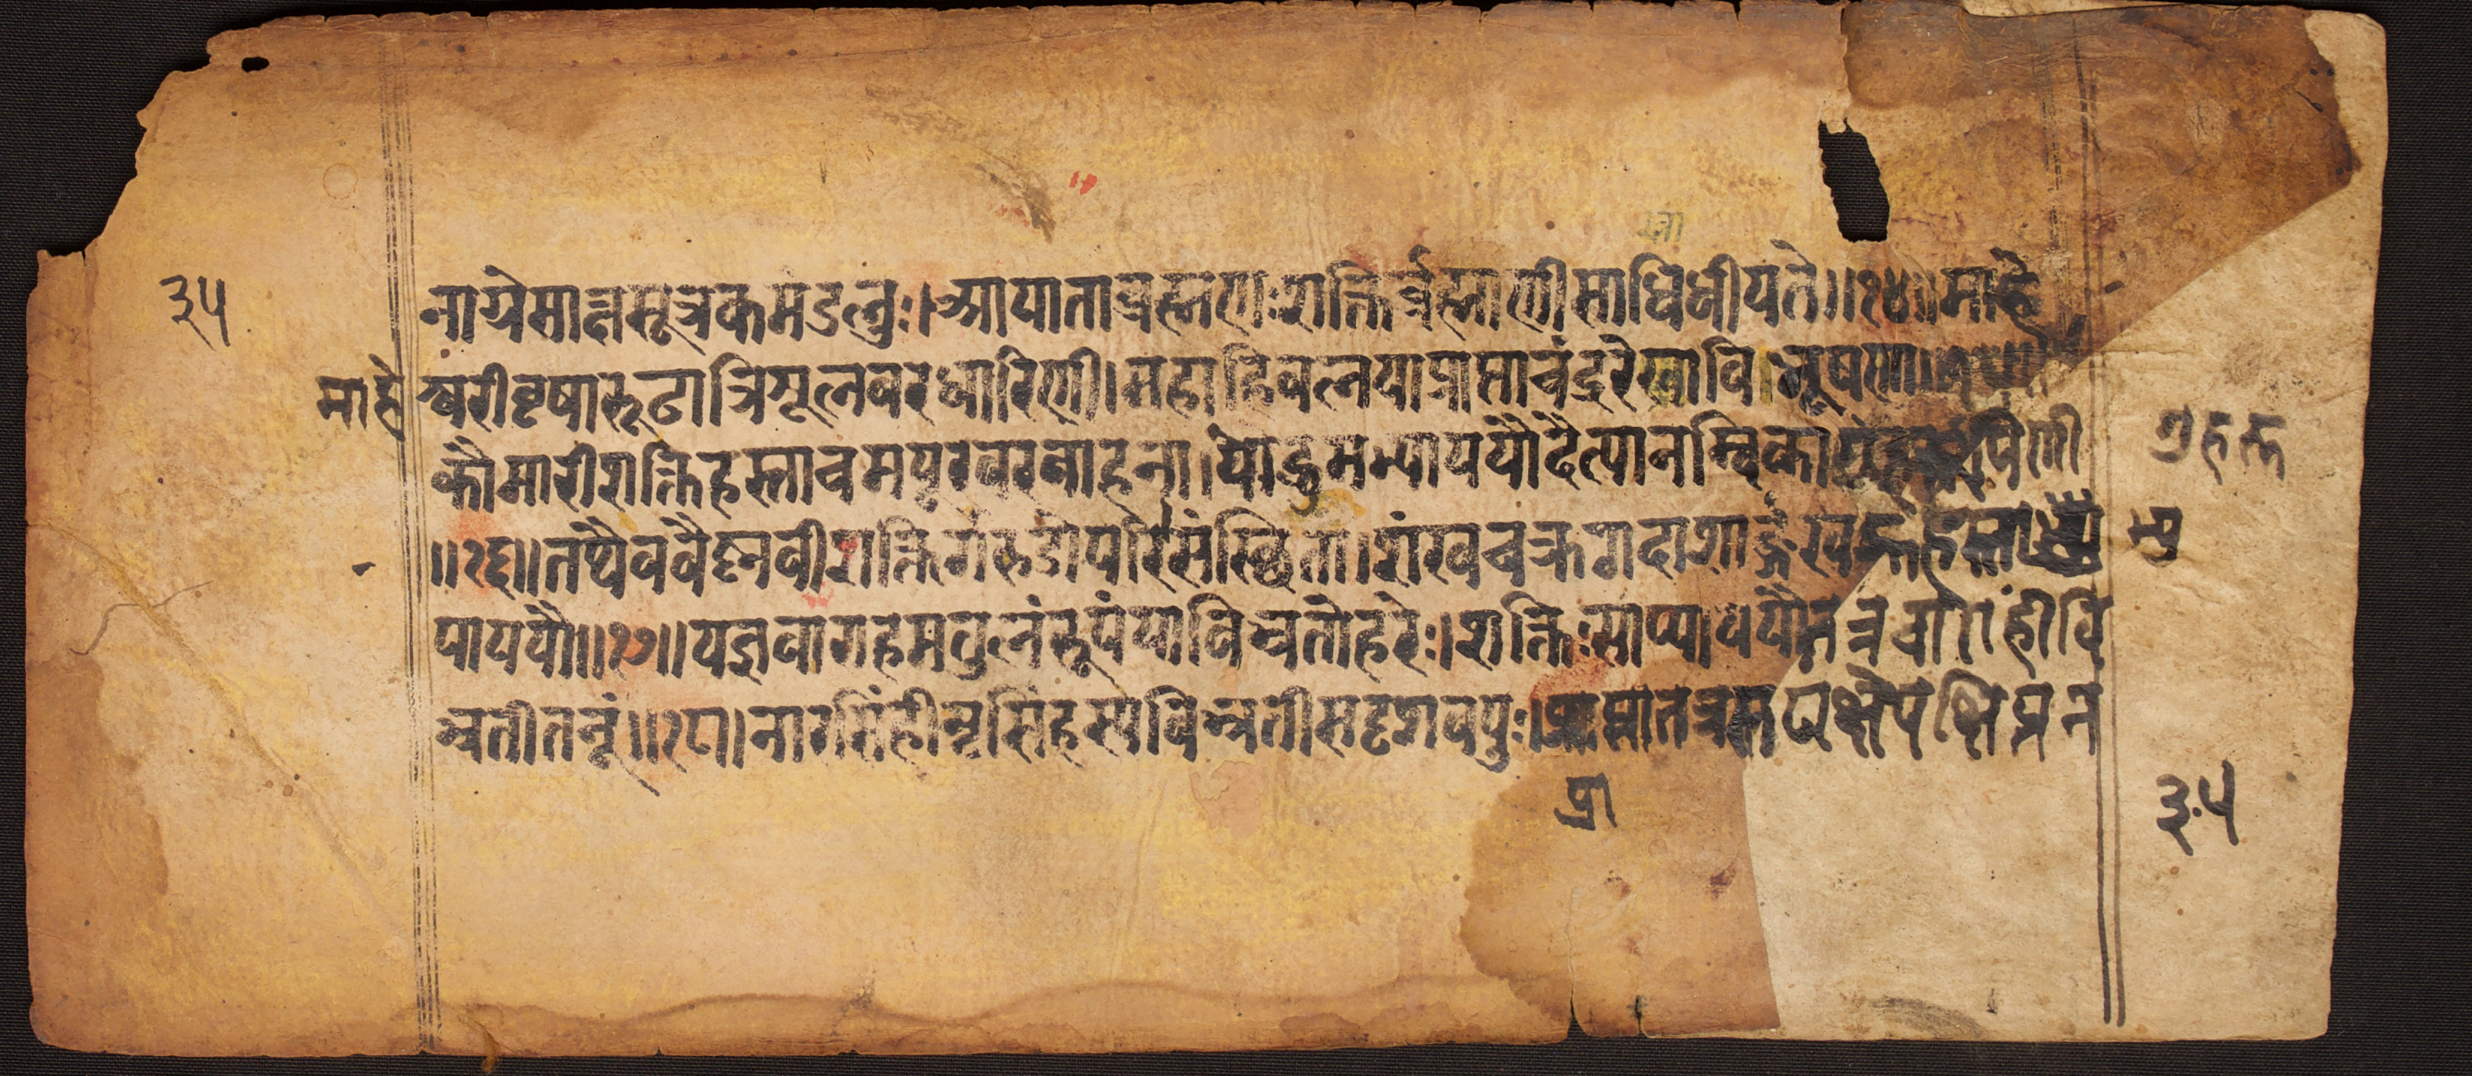 ३५
नाग्रेसाक्षसूत्रकमंडलुः।आयाताब्रह्मणःशक्तिर्ब्रह्माणीसाभिधीयते॥१४॥माहे
माहे
श्वरीवृषारूढात्रिशूलवरधारिणी।महाहिवलयाप्राप्ताचंद्ररेखाविभूषणा॥
कौमारीशक्तिहस्ताचमयूरवरवाहना।योद्धुमभ्याययौदैत्यानम्बिकागुहरूपिणी
गुहरू
॥१६॥तथैववैष्णवीशक्तिर्गरुडोपरिसंस्थिता।शंखचक्रगदाशार्ङ्गखड्गहस्ता
भ्यु
पाययौ॥१७॥यज्ञवाराहमतुलंरूपंयाबिभ्रतोहरेः।शक्तिःसाप्याययौतत्रवाराहीबि
भ्रतीतनूं॥१८॥नारसिंहीनृसिंहस्यबिभ्रतीसदृशंवपुः।प्राप्तातत्रसटाक्षेपक्षिप्तन
प्रा
३५